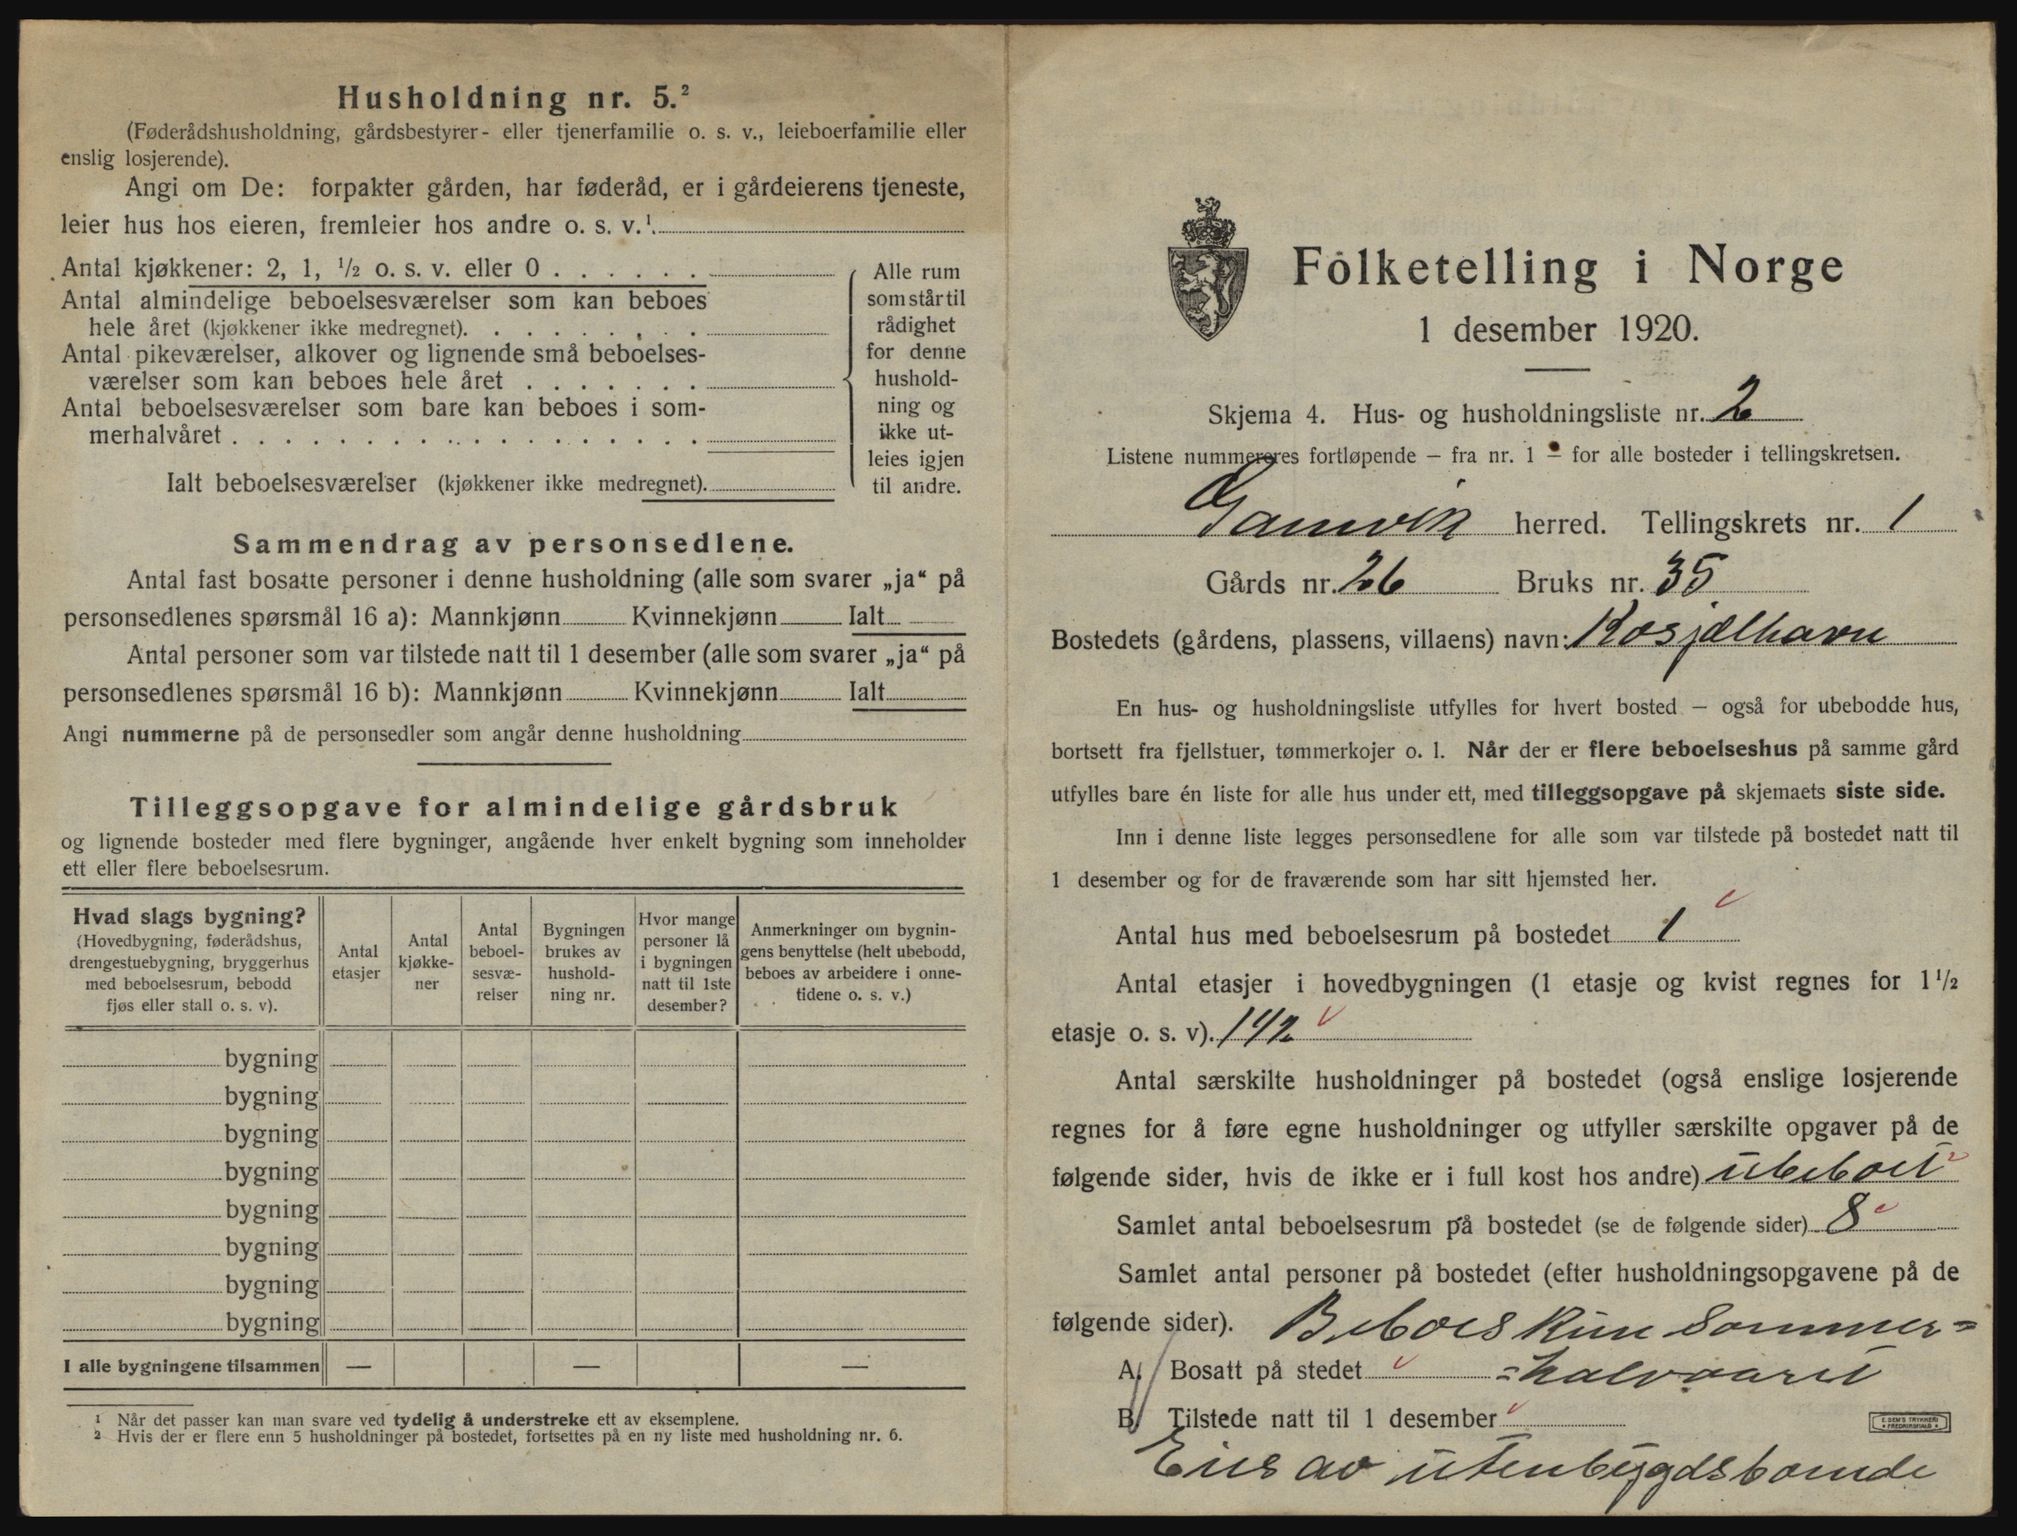 Husholdning nr. 5.²
(Føderådshusholdning, gårdsbestyrer- eller tjenerfamilie o. s. v., leieboerfamilie eller
enslig losjerende).
Angi om De: forpakter gården, har føderåd, er i gårdeierens tjeneste,
leier hus hos eieren, fremleier hos andre o. s. v.¹
Antal kjøkkener: 2, 1, ½ o. s. v. eller 0 . . . . . .
Antal almindelige beboelsesværelser som kan beboes
hele året (kjøkkener ikke medregnet). . . . . . . . .
Antal pikeværelser, alkover og lignende små beboelses-
værelser som kan beboes hele året . . . . . . .
Antal beboelsesværelser som bare kan beboes i som-
merhalvåret . . . . . . . . . . . . . . . . . .
Ialt beboelsesværelser (kjøkkener ikke medregnet).
Alle rum
som står til
rådighet
for denne
hushold-
ning og
ikke ut-
leies igjen
til andre.
Sammendrag av personsedlene.
Antal fast bosatte personer i denne husholdning (alle som svarer „ja“ på
personsedlenes spørsmål 16 a): Mannkjønn Kvinnekjønn Ialt
Antal personer som var tilstede natt til 1 desember (alle som svarer „ja“ på
personsedlenes spørsmål 16 b): Mannkjønn Kvinnekjønn Ialt
Angi nummerne på de personsedler som angår denne husholdning
Tilleggsopgave for almindelige gårdsbruk
og lignende bosteder med flere bygninger, angående hver enkelt bygning som inneholder
ett eller flere beboelsesrum.
Hvad slags bygning?
(Hovedbygning, føderådshus,
drengestuebygning, bryggerhus
med beboelsesrum, bebodd
fjøs eller stall o. s. v).
Antal
etasjer
Antal
kjøkke-
ner
Antal
beboel-
sesvæ-
relser
Bygningen
brukes av
hushold-
ning nr.
Hvor mange
personer lå
i bygningen
natt til 1ste
desember?
Anmerkninger om bygnin-
gens benyttelse (helt ubebodd,
beboes av arbeidere i onne-
tidene o. s. v.)
bygning
bygning
bygning
bygning
bygning
bygning
bygning
bygning
I alle bygningene tilsammen — — —
¹ Når det passer kan man svare ved tydelig å understreke ett av eksemplene.
² Hvis der er flere enn 5 husholdninger på bostedet, fortsettes på en ny liste med husholdning nr. 6.
Folketelling i Norge
1 desember 1920.
Skjema 4. Hus- og husholdningsliste nr. 2
Listene nummereres fortløpende – fra nr. 1 – for alle bosteder i tellingskretsen.
Gamvik herred. Tellingskrets nr. 1
Gårds nr. 26 Bruks nr. 35
Bostedets (gårdens, plassens, villaens) navn: Kosjælhavn
En hus- og husholdningsliste utfylles for hvert bosted – også for ubebodde hus,
bortsett fra fjellstuer, tømmerkojer o. l. Når der er flere beboelseshus på samme gård
utfylles bare én liste for alle hus under ett, med tilleggsopgave på skjemaets siste side.
Inn i denne liste legges personsedlene for alle som var tilstede på bostedet natt til
1 desember og for de fraværende som har sitt hjemsted her.
Antal hus med beboelsesrum på bostedet 1
Antal etasjer i hovedbygningen (1 etasje og kvist regnes for 1½
etasje o. s. v). 1 1/2
Antal særskilte husholdninger på bostedet (også enslige losjerende
regnes for å føre egne husholdninger og utfyller særskilte opgaver på de
følgende sider, hvis de ikke er i full kost hos andre) ubeboet
Samlet antal beboelsesrum på bostedet (se de følgende sider) 8
Samlet antal personer på bostedet (efter husholdningsopgavene på de
følgende sider). Beboes kun sommer=
A. Bosatt på stedet =halvaaret
B. Tilstede natt til 1 desember
E. SEM'S TRYKKERI
FREDRIKSHALD
Eies av utenbygdsboende